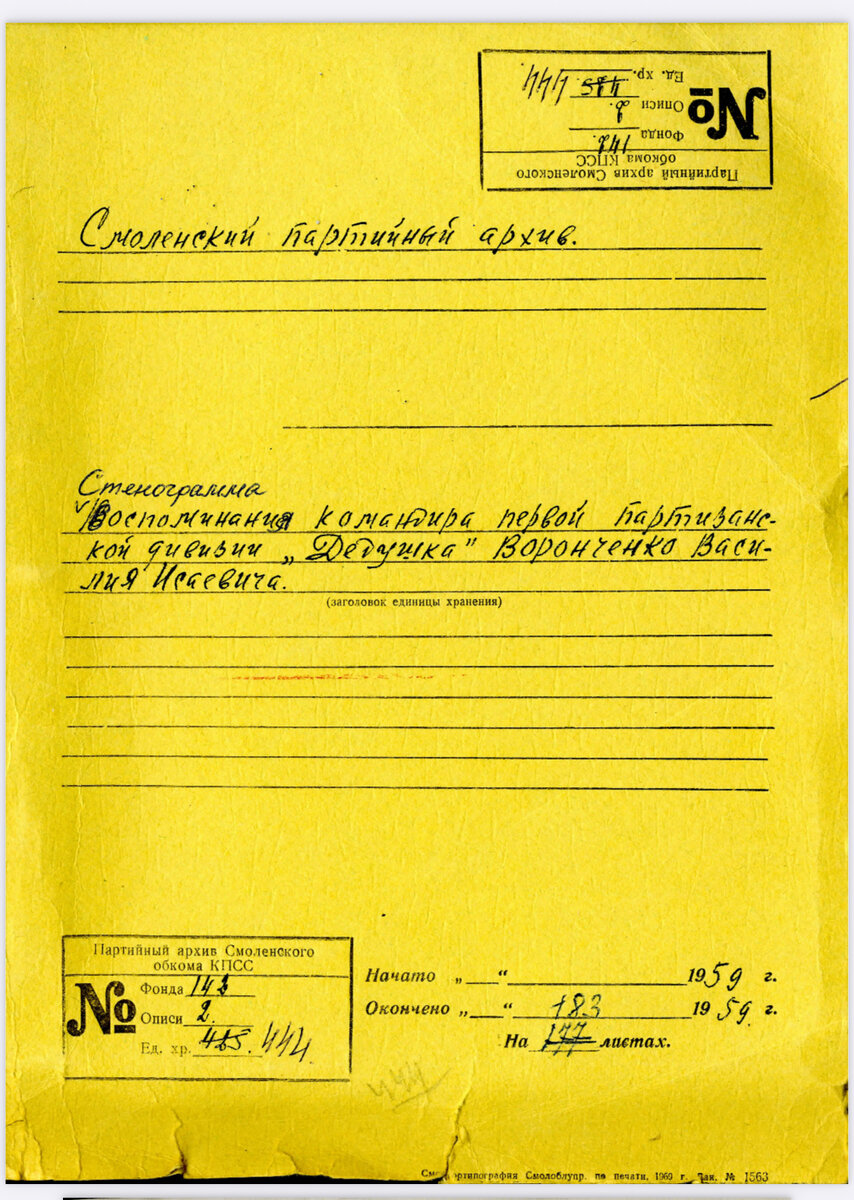 Партийный архив Смоленского
обкома КПСС
№
Фонда 142.
Описи 2.
Ед. хр. 415 444
Смоленский партийный архив.
Стенограмма
Воспоминания командира первой партизанс-
кой дивизии „Дедушка" Воронченко Васи-
лия Исаевича.
(заголовок единицы хранения)
Партийный архив Смоленского
обкома КПСС
№
Фонда 142
Описи 2.
Ед. хр. 444.
Начато „ “ 1959 г.
Окончено „ “ 1959 г.
183
На 177 листах.
444
Смоблтипография Смолоблупр. по печати, 1969 г. Зак. № 1563